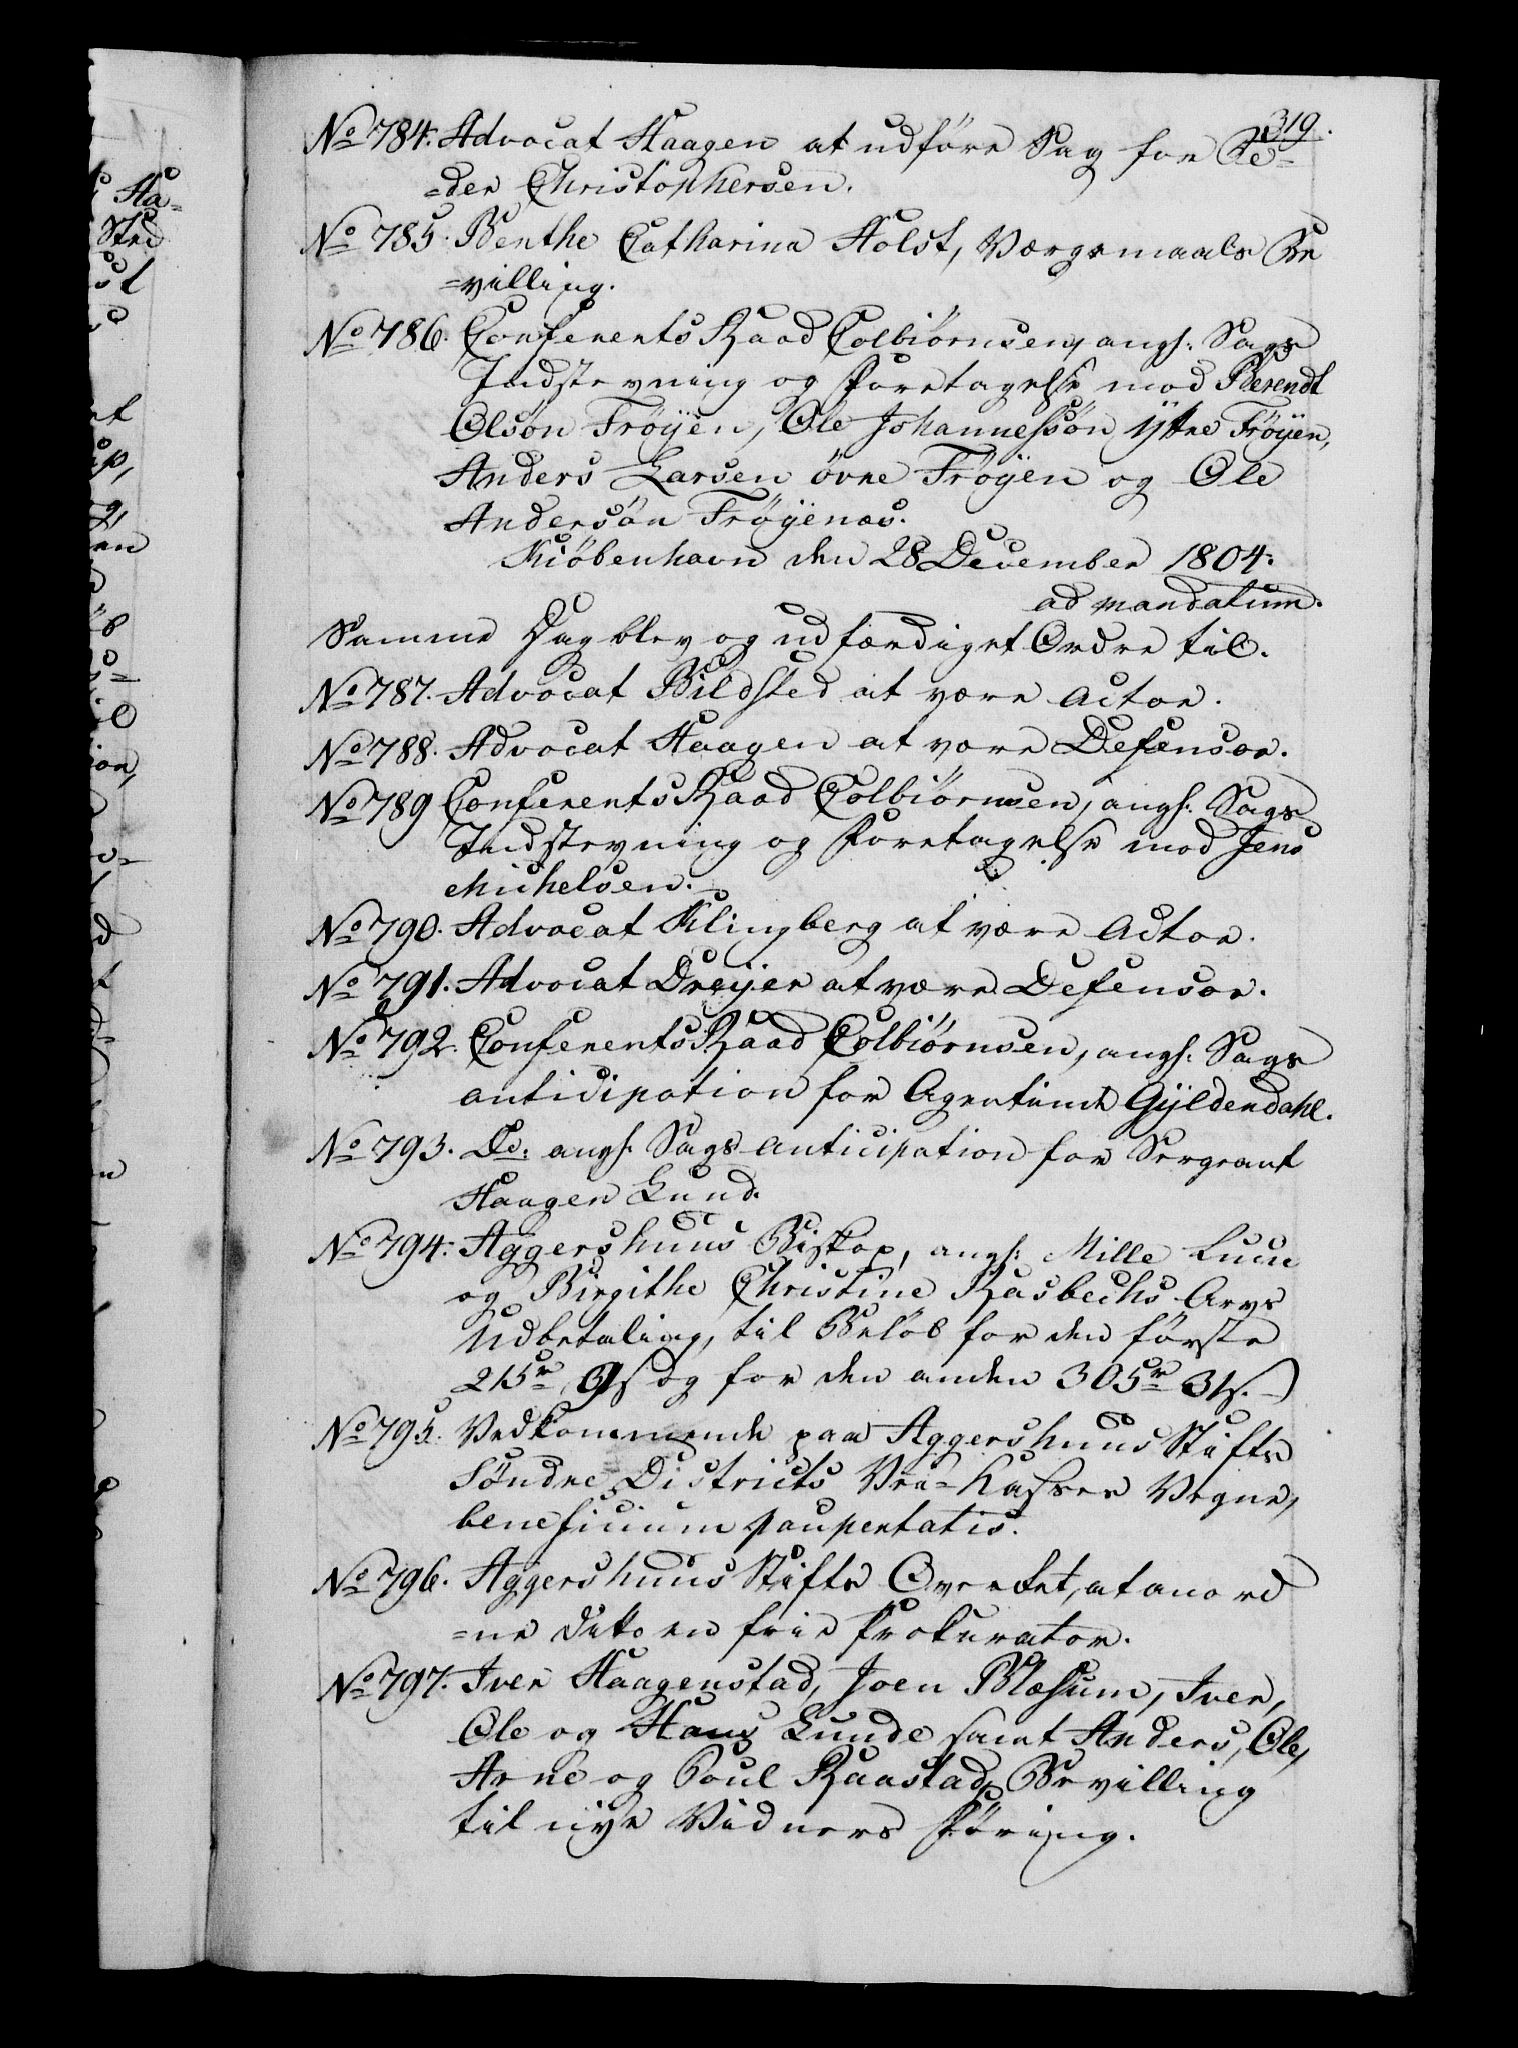 319.
No 784. Advocat Haagen at udføre Sag for Pe-
=der Christophersen.
No 785. Benthe Catharina Holst, Værgemaals Be
=villing.
No 786. Conferents Raad Colbiørnsen, angl. Sags
Indstevning og Foretagelse mod Berendt
Olsøn Frøÿen, Ole Johannessøn ÿtre Frøÿen,
Anders Larsen øvre Frøÿen og Ole
Andersøn Frøÿenæs.
Kiøbenhavn den 28 December 1804.
ad mandatum.
Samme Dag blev og udfærdiget Ordre til.
No 787. Advocat Bildsted at være Actor.
No 788. Advocat Haagen at være Defensor.
No 789 Conferents Raad Colbiørnsen, angl. Sags
Indstevning og Foretagelse mod Jens
Michelsen.
No 790. Advocat Klingberg at være Actor.
No 791. Advocat Dreÿer at være Defensor.
No 792. Conferents Raad Colbiørnsen, angl. Sags
anticipation for Agentinde Gÿldendahl.
No 793. Do. angl. Sags anticipation for Sergeant
Haagen Lund.
No 794. Aggershuus Biskop, angl. Mille Lucie
og Birgithe Christine Rasbechs Arvs
Udbetaling, til Beløb for den første
215 r 9 s og for den anden 305 r 31 s.
No 795. Vedkommende paa Aggershuus Stifts
Søndre Districts Vei=Kasses Vegne,
beneficium paupertatis.
No 796. Aggershuus Stifts Øvrighet, at anord
=ne dito en frie Prokurator.
No 797. Iver Haagenstad, Joen Blæsum, Iver,
Ole og Hans Lunde samt Anders, Ole,
Arne og Poul Raastad, Bevilling
til nÿe Vidners Føring.